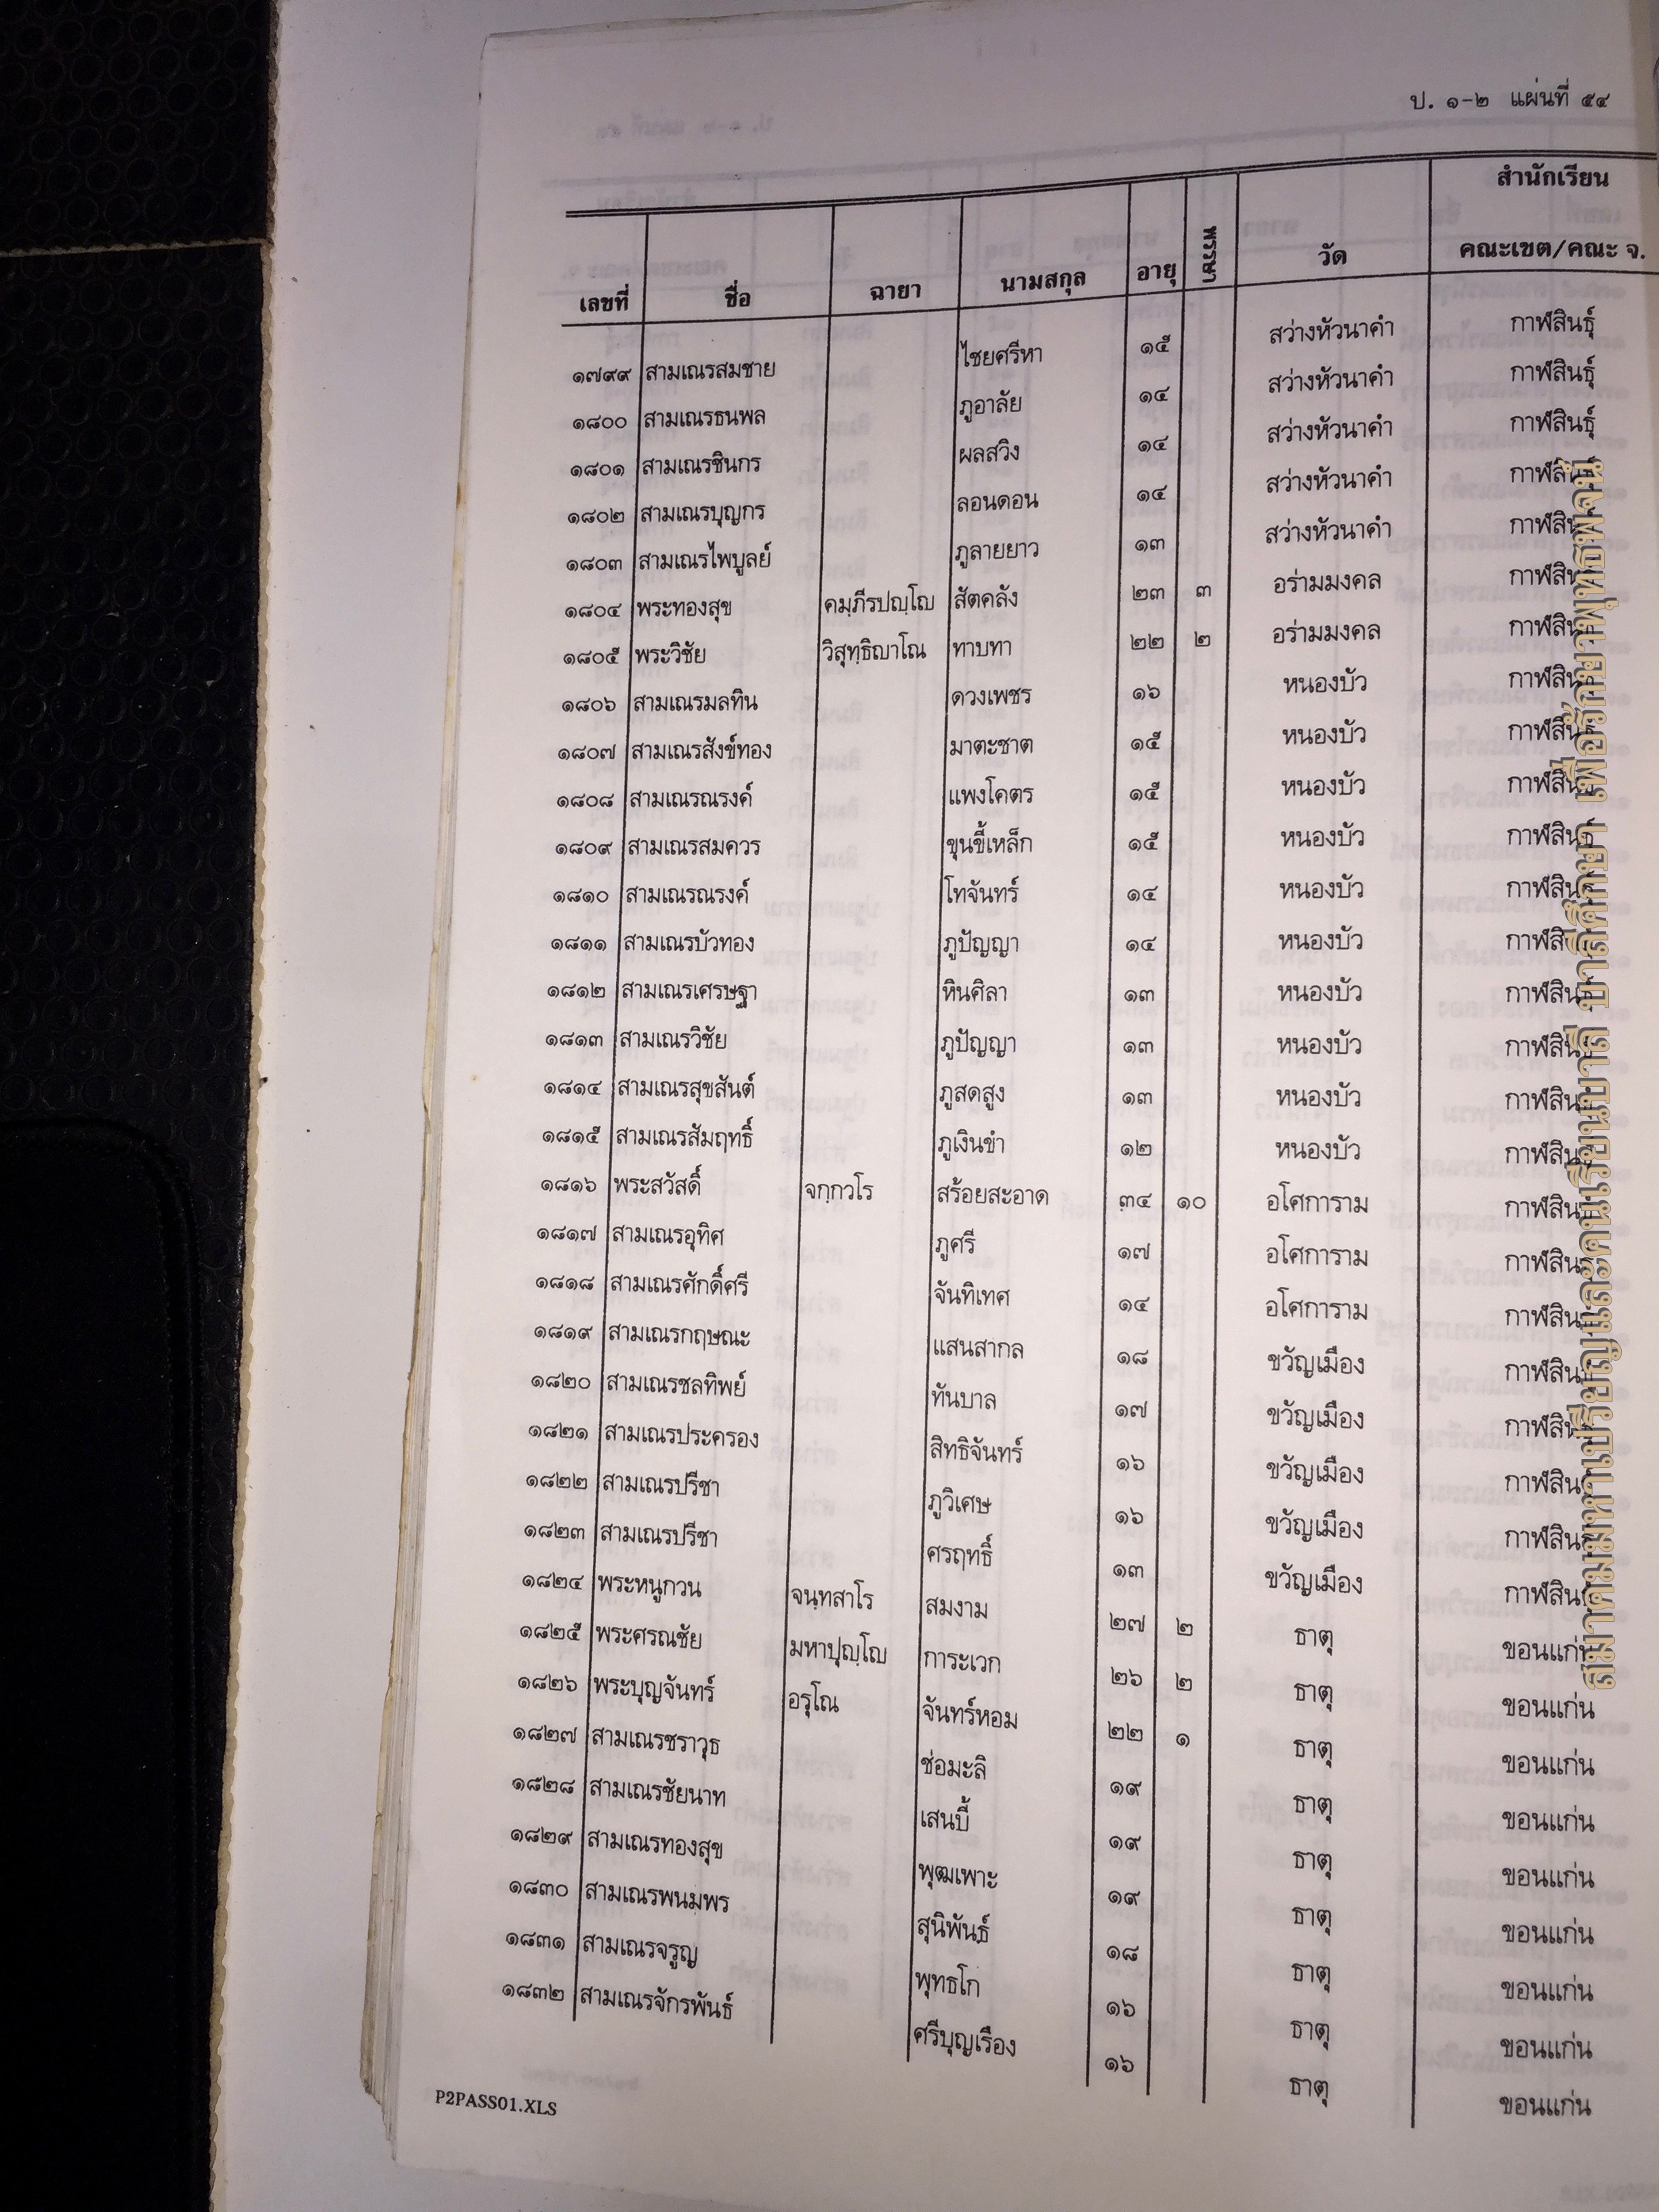 ป. ๑-๒ แผ่นที่ ๕๔
เลขที่ ชื่อ ฉายา นามสกุล อายุ พรรษา วัด สำนักเรียน คณะเขต/คณะ จ.
๑๗๙๙ สามเณรสมชาย ไชยศรีหา ๑๕ สว่างหัวนาคำ กาฬสินธุ์
๑๘๐๐ สามเณรธนพล ภูอาลัย ๑๔ สว่างหัวนาคำ กาฬสินธุ์
๑๘๐๑ สามเณรชินกร ผลสวิง ๑๔ สว่างหัวนาคำ กาฬสินธุ์
๑๘๐๒ สามเณรบุญกร ลอนดอน ๑๔ สว่างหัวนาคำ กาฬสินธุ์
๑๘๐๓ สามเณรไพบูลย์ ภูลายยาว ๑๓ สว่างหัวนาคำ กาฬสินธุ์
๑๘๐๔ พระทองสุข คมฺภีรปญฺโญ สัตคลัง ๒๓ ๓ อร่ามมงคล กาฬสินธุ์
๑๘๐๕ พระวิชัย วิสุทฺธิญาโณ ทาบทา ๒๒ ๒ อร่ามมงคล กาฬสินธุ์
๑๘๐๖ สามเณรมลทิน ดวงเพชร ๑๖ หนองบัว กาฬสินธุ์
๑๘๐๗ สามเณรสังข์ทอง มาตะชาต ๑๕ หนองบัว กาฬสินธุ์
๑๘๐๘ สามเณรณรงค์ แพงโคตร ๑๕ หนองบัว กาฬสินธุ์
๑๘๐๙ สามเณรสมควร ขุนขี้เหล็ก ๑๕ หนองบัว กาฬสินธุ์
๑๘๑๐ สามเณรณรงค์ โทจันทร์ ๑๔ หนองบัว กาฬสินธุ์
๑๘๑๑ สามเณรบัวทอง ภูปัญญา ๑๔ หนองบัว กาฬสินธุ์
๑๘๑๒ สามเณรเศรษฐา หินศิลา ๑๓ หนองบัว กาฬสินธุ์
๑๘๑๓ สามเณรวิชัย ภูปัญญา ๑๓ หนองบัว กาฬสินธุ์
๑๘๑๔ สามเณรสุขสันต์ ภูสดสูง ๑๓ หนองบัว กาฬสินธุ์
๑๘๑๕ สามเณรสัมฤทธิ์ ภูเงินขำ ๑๒ หนองบัว กาฬสินธุ์
๑๘๑๖ พระสวัสดิ์ จกฺกวโร สร้อยสะอาด ๓๔ ๑๐ อโศการาม กาฬสินธุ์
๑๘๑๗ สามเณรอุทิศ ภูศรี ๑๗ อโศการาม กาฬสินธุ์
๑๘๑๘ สามเณรศักดิ์ศรี จันทิเทศ ๑๔ อโศการาม กาฬสินธุ์
๑๘๑๙ สามเณรกฤษณะ แสนสากล ๑๘ ขวัญเมือง กาฬสินธุ์
๑๘๒๐ สามเณรชลทิพย์ ทันบาล ๑๗ ขวัญเมือง กาฬสินธุ์
๑๘๒๑ สามเณรประครอง สิทธิจันทร์ ๑๖ ขวัญเมือง กาฬสินธุ์
๑๘๒๒ สามเณรปรีชา ภูวิเศษ ๑๖ ขวัญเมือง กาฬสินธุ์
๑๘๒๓ สามเณรปรีชา ศรฤทธิ์ ๑๓ ขวัญเมือง กาฬสินธุ์
๑๘๒๔ พระหนูกวน จนฺทสาโร สมงาม ๒๗ ๒ ธาตุ ขอนแก่น
๑๘๒๕ พระศรณชัย มหาปุญฺโญ การะเวก ๒๖ ๒ ธาตุ ขอนแก่น
๑๘๒๖ พระบุญจันทร์ อรุโณ จันทร์หอม ๒๒ ๑ ธาตุ ขอนแก่น
๑๘๒๗ สามเณรชราวุธ ช่อมะลิ ๑๙ ธาตุ ขอนแก่น
๑๘๒๘ สามเณรชัยนาท เสนบี้ ๑๙ ธาตุ ขอนแก่น
๑๘๒๙ สามเณรทองสุข พุฒเพาะ ๑๙ ธาตุ ขอนแก่น
๑๘๓๐ สามเณรพนมพร สุนิพันธ์ ๑๘ ธาตุ ขอนแก่น
๑๘๓๑ สามเณรจรูญ พุทธโก ๑๖ ธาตุ ขอนแก่น
๑๘๓๒ สามเณรจักรพันธ์ ศรีบุญเรือง ๑๖ ธาตุ ขอนแก่น
P2PASS01.XLS
สมาคมมหาเปรียญและคนเรียนบาลี บาลีศึกษา เพื่อรักษาพุทธพจน์